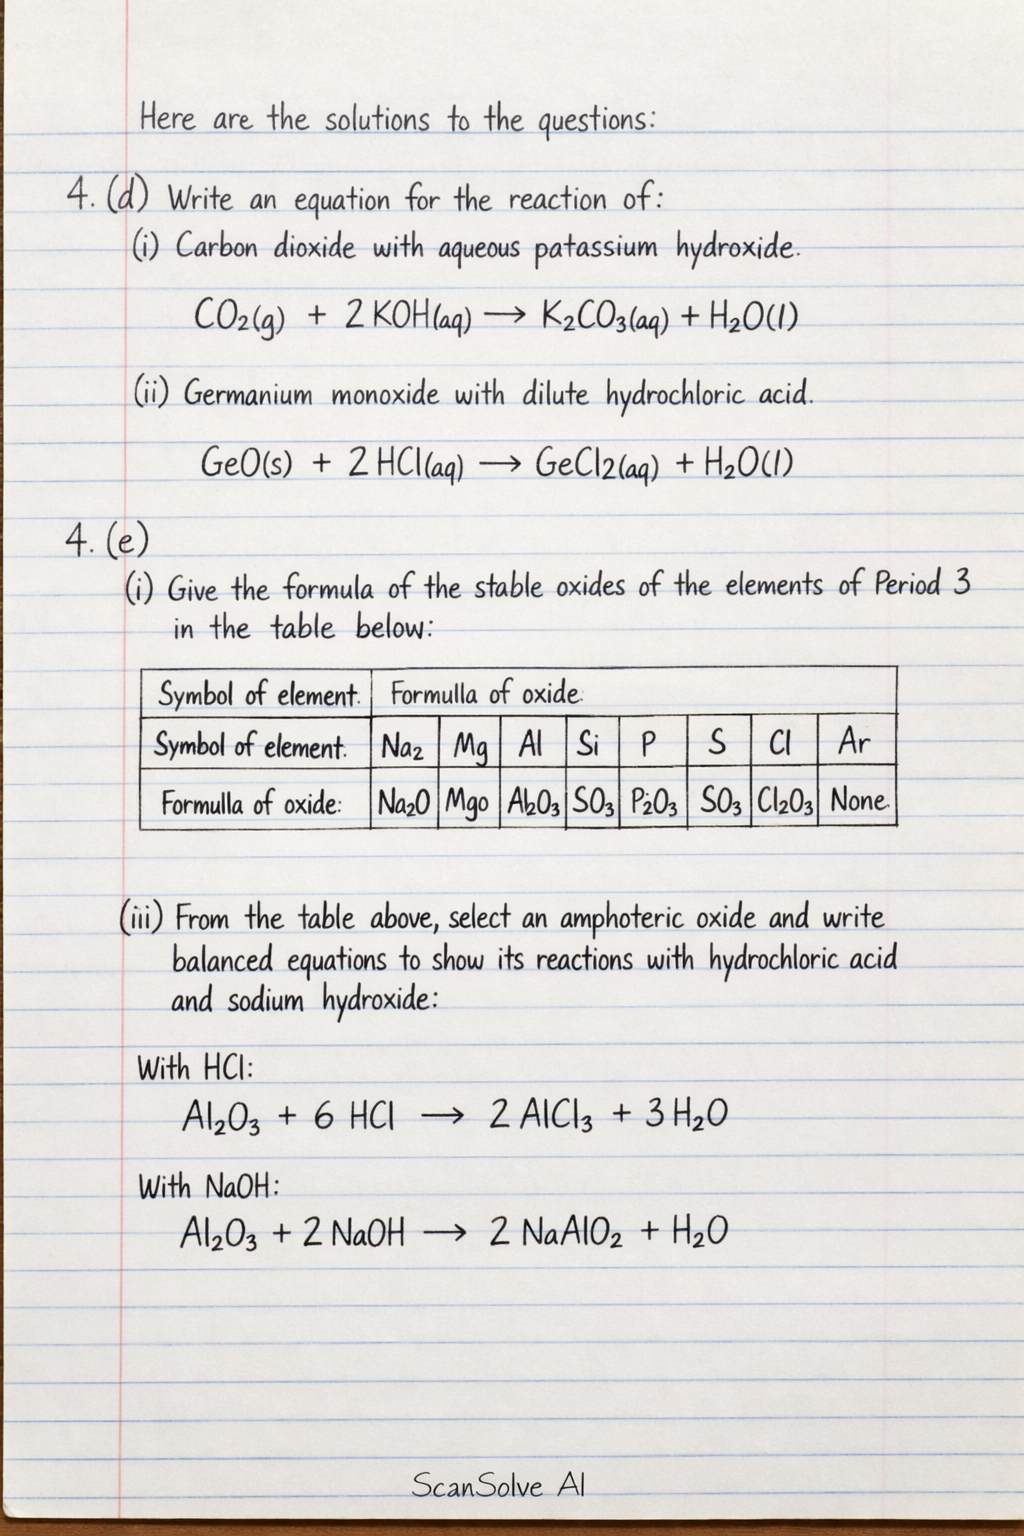 Here are the solutions to the questions:
4. (d) Write an equation for the reaction of:
(i) Carbon dioxide with aqueous patassium hydroxide.
CO₂(g) + 2 KOH(aq) → K₂CO₃(aq) + H₂O(l)
(ii) Germanium monoxide with dilute hydrochloric acid.
GeO(s) + 2 HCl(aq) → GeCl₂(aq) + H₂O(l)
4. (e)
(i) Give the formula of the stable oxides of the elements of Period 3
in the table below:
Symbol of element. Formulla of oxide.
Symbol of element. Na₂ Mg Al Si P S Cl Ar
Formulla of oxide: Na₂O Mgo Al₂O₃ SO₃ P₂O₃ SO₃ Cl₂O₃ None.
(iii) From the table above, select an amphoteric oxide and write
balanced equations to show its reactions with hydrochloric acid
and sodium hydroxide:
With HCl:
Al₂O₃ + 6 HCl → 2 AlCl₃ + 3 H₂O
With NaOH:
Al₂O₃ + 2 NaOH → 2 NaAlO₂ + H₂O
ScanSolve AI